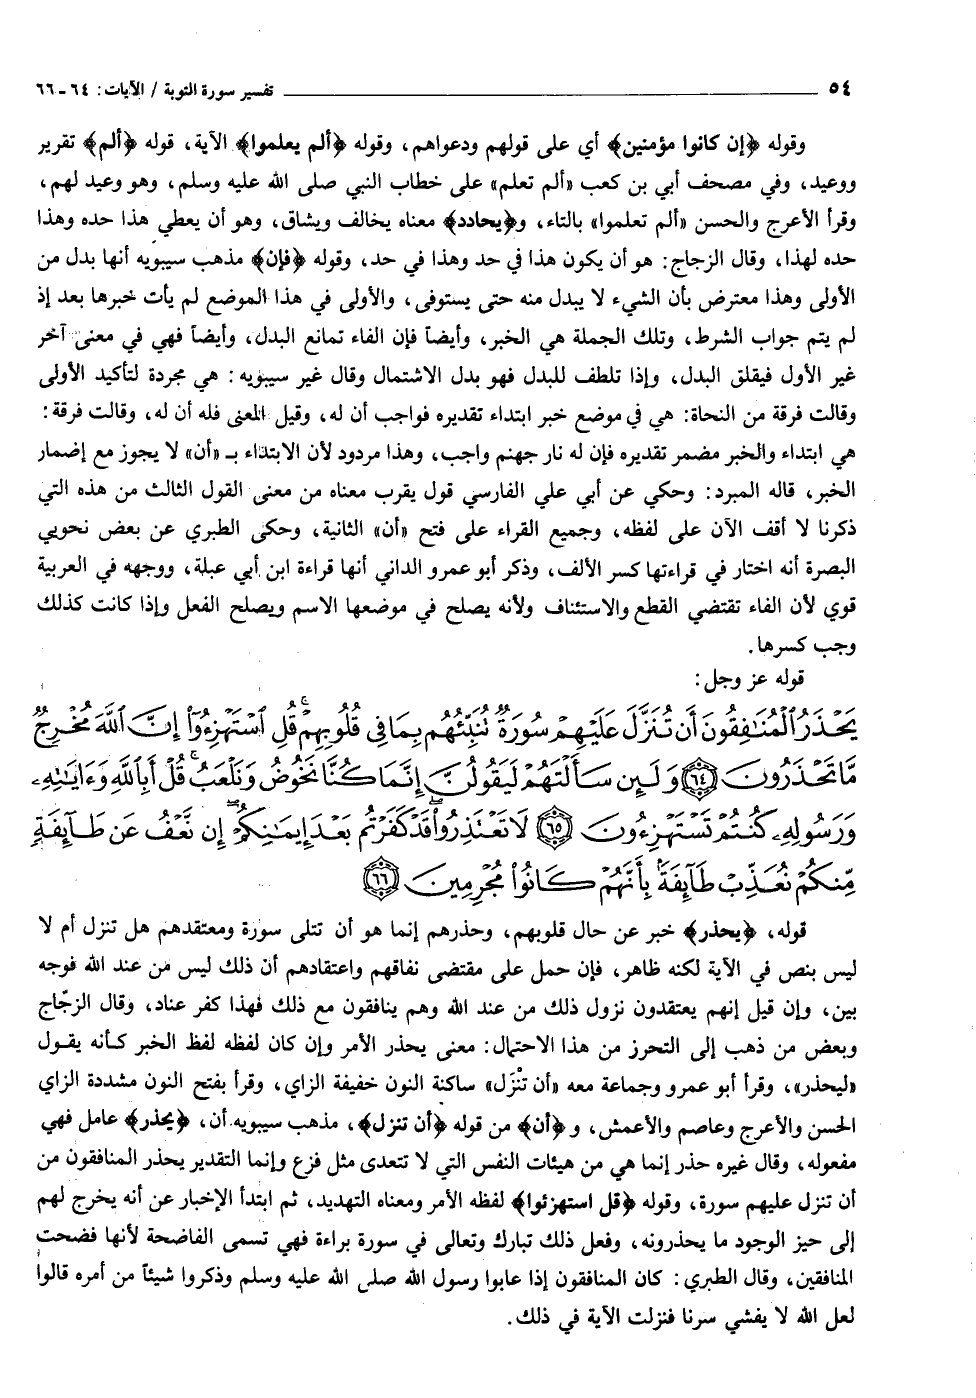 ٥٤ تفسير سورة التوبة / الآيات: ٦٤ - ٦٦
وقوله ﴿إن كانوا مؤمنين﴾ أي على قولهم ودعواهم، وقوله ﴿ألم يعلموا﴾ الآية، قوله ﴿ألم﴾ تقرير
ووعيد، وفي مصحف أبي بن كعب «ألم تعلم» على خطاب النبي صلى الله عليه وسلم، وهو وعيد لهم،
وقرأ الأعرج والحسن «ألم تعلموا» بالتاء، و﴿يحادد﴾ معناه يخالف ويشاق، وهو أن يعطي هذا حده وهذا
حده لهذا، وقال الزجاج: هو أن يكون هذا في حد وهذا في حد، وقوله ﴿فإن﴾ مذهب سيبويه أنها بدل من
الأولى وهذا معترض بأن الشيء لا يبدل منه حتى يستوفى، والأولى في هذا الموضع لم يأت خبرها بعد إذ
لم يتم جواب الشرط، وتلك الجملة هي الخبر، وأيضاً فإن الفاء تمانع البدل، وأيضاً فهي في معنى آخر
غير الأول فيقلق البدل، وإذا تلطف للبدل فهو بدل الاشتمال وقال غير سيبويه: هي مجردة لتأكيد الأولى
وقالت فرقة من النحاة: هي في موضع خبر ابتداء تقديره فواجب أن له، وقيل المعنى فله أن له، وقالت فرقة:
هي ابتداء والخبر مضمر تقديره فإن له نار جهنم واجب، وهذا مردود لأن الابتداء بـ «أن» لا يجوز مع إضمار
الخبر، قاله المبرد: وحكي عن أبي علي الفارسي قول يقرب معناه من معنى القول الثالث من هذه التي
ذكرنا لا أقف الآن على لفظه، وجميع القراء على فتح «أن» الثانية، وحكى الطبري عن بعض نحويي
البصرة أنه اختار في قراءتها كسر الألف، وذكر أبو عمرو الداني أنها قراءة ابن أبي عبلة، ووجهه في العربية
قوي لأن الفاء تقتضي القطع والاستئناف ولأنه يصلح في موضعها الاسم ويصلح الفعل وإذا كانت كذلك
وجب كسرها.
قوله عز وجل:
يَحْذَرُ ٱلْمُنَٰفِقُونَ أَن تُنَزَّلَ عَلَيْهِمْ سُورَةٌ تُنَبِّئُهُم بِمَا فِى قُلُوبِهِمْ ۚ قُلِ ٱسْتَهْزِءُوٓا۟ إِنَّ ٱللَّهَ مُخْرِجٌ
مَّا تَحْذَرُونَ ٦٤ وَلَئِن سَأَلْتَهُمْ لَيَقُولُنَّ إِنَّمَا كُنَّا نَخُوضُ وَنَلْعَبُ ۚ قُلْ أَبِٱللَّهِ وَءَايَٰتِهِۦ
وَرَسُولِهِۦ كُنتُمْ تَسْتَهْزِءُونَ ٦٥ لَا تَعْتَذِرُوا۟ قَدْ كَفَرْتُم بَعْدَ إِيمَٰنِكُمْ ۚ إِن نَّعْفُ عَن طَآئِفَةٍ
مِّنكُمْ نُعَذِّبْ طَآئِفَةًۢ بِأَنَّهُمْ كَانُوا۟ مُجْرِمِينَ ٦٦
قوله، ﴿يحذر﴾ خبر عن حال قلوبهم، وحذرهم إنما هو أن تتلى سورة ومعتقدهم هل تنزل أم لا
ليس بنص في الآية لكنه ظاهر، فإن حمل على مقتضى نفاقهم واعتقادهم أن ذلك ليس من عند الله فوجه
بين، وإن قيل إنهم يعتقدون نزول ذلك من عند الله وهم ينافقون مع ذلك فهذا كفر عناد، وقال الزجّاج
وبعض من ذهب إلى التحرز من هذا الاحتمال: معنى يحذر الأمر وإن كان لفظه لفظ الخبر كأنه يقول
«ليحذر»، وقرأ أبو عمرو وجماعة معه «أن تنْزَل» ساكنة النون خفيفة الزاي، وقرأ بفتح النون مشددة الزاي
الحسن والأعرج وعاصم والأعمش، و﴿أن﴾ من قوله ﴿أن تنزل﴾، مذهب سيبويه أن، ﴿يحذر﴾ عامل فهي
مفعوله، وقال غيره حذر إنما هي من هيئات النفس التي لا تتعدى مثل فزع وإنما التقدير يحذر المنافقون من
أن تنزل عليهم سورة، وقوله ﴿قل استهزئوا﴾ لفظه الأمر ومعناه التهديد، ثم ابتدأ الإخبار عن أنه يخرج لهم
إلى حيز الوجود ما يحذرونه، وفعل ذلك تبارك وتعالى في سورة براءة فهي تسمى الفاضحة لأنها فضحت
المنافقين، وقال الطبري: كان المنافقون إذا عابوا رسول الله صلى الله عليه وسلم وذكروا شيئاً من أمره قالوا
لعل الله لا يفشي سرنا فنزلت الآية في ذلك.